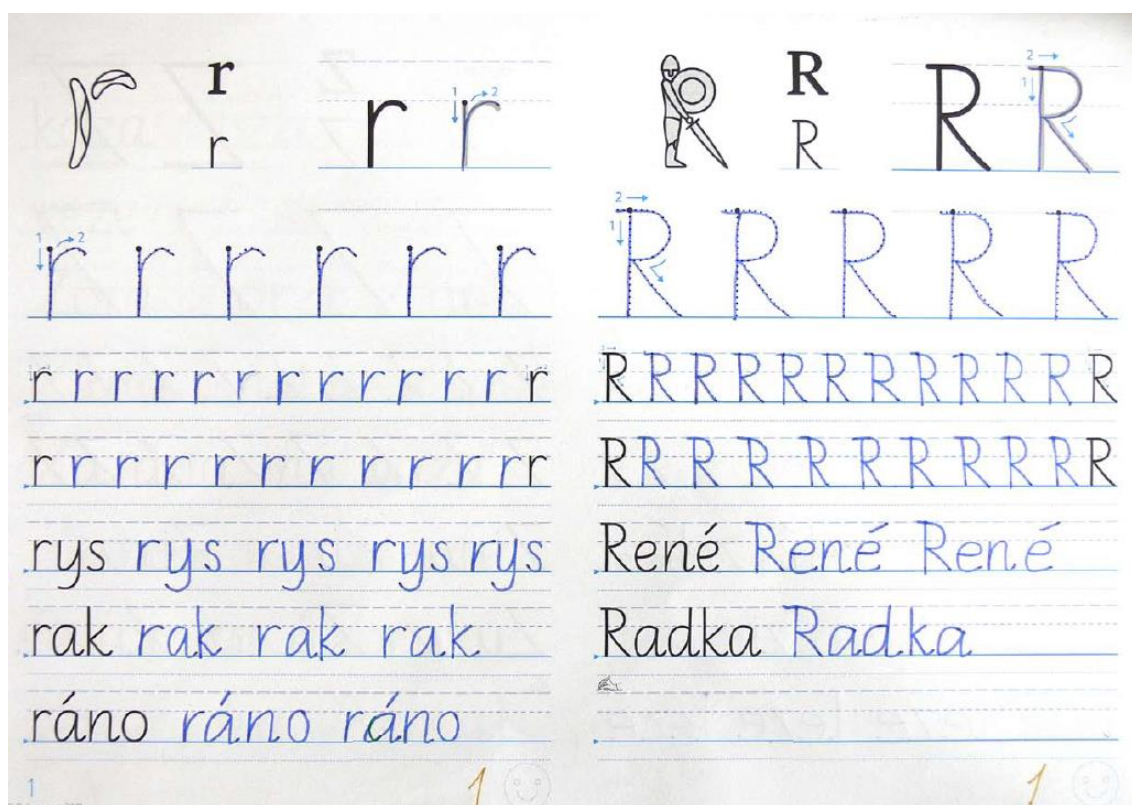 r
r r r
1 2
1 2
r r r r r r
r r r r r r r r r r r r r
r r r r r r r r r r r r r
rys rys rys rys rys
rak rak rak rak
ráno ráno ráno
1
1
R
R R R
2
1
2
1
R R R R R
R R R R R R R R R R R R
R R R R R R R R R R R
René René René
Radka Radka
1